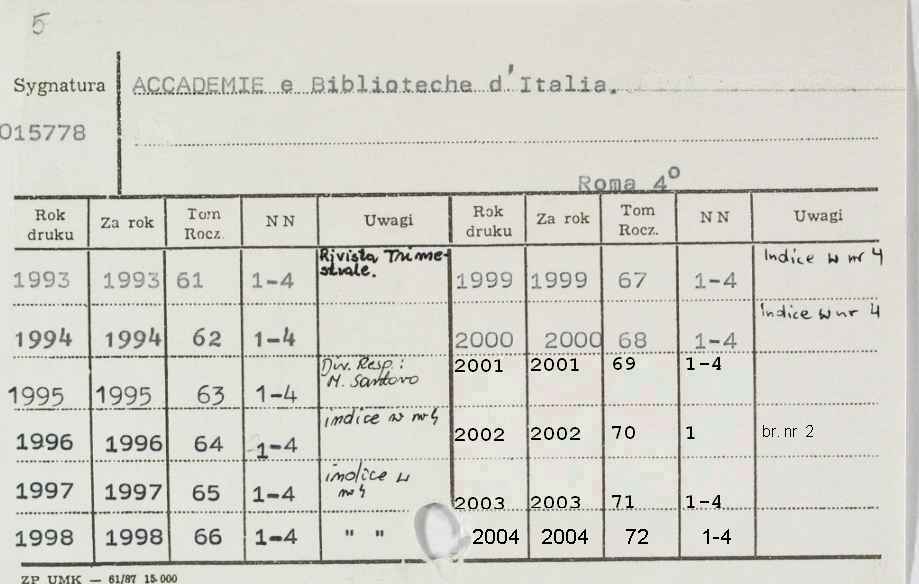 5
Sygnatura ACCADEMIE e Biblioteche d'Italia.
015778
Roma 4º
Rok druku Za rok Tom Rocz. NN Uwagi Rok druku Za rok Tom Rocz. NN Uwagi
1993 1993 61 1-4 Rivista Trimestrale. 1999 1999 67 1-4 Indice w nr 4
1994 1994 62 1-4 2000 2000 68 1-4 Indice w nr 4
1995 1995 63 1-4 Div. Resp.: M. Santoro 2001 2001 69 1-4
1996 1996 64 1-4 indice w nr 4 2002 2002 70 1 br. nr 2
1997 1997 65 1-4 indice w nr 4 2003 2003 71 1-4
1998 1998 66 1-4 " " 2004 2004 72 1-4
ZP UMK — 61/87 15.000